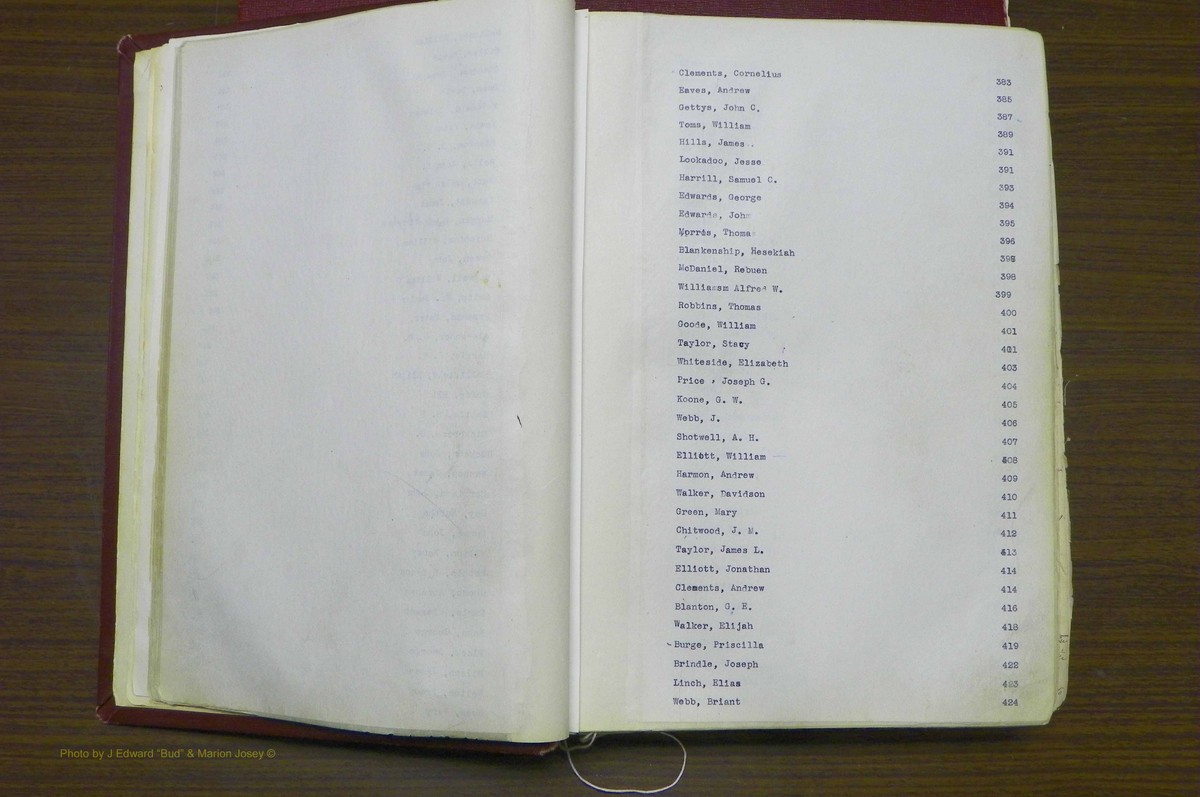 Clements, Cornelius 383
Eaves, Andrew 385
Gettys, John C. 387
Toms, William 389
Hills, James . 391
Lookadoo, Jesse 391
Harrill, Samuel C. 393
Edwards, George 394
Edwards, John 395
Morris, Thomas 396
Blankenship, Hesekiah 398
McDaniel, Rebuen 398
Williamsm Alfred W. 399
Robbins, Thomas 400
Goode, William 401
Taylor, Stacy 401
Whiteside, Elizabeth 403
Price , Joseph G. 404
Koone, G. W. 405
Webb, J. 406
Shotwell, A. H. 407
Elliott, William 408
Harmon, Andrew 409
Walker, Davidson 410
Green, Mary 411
Chitwood, J. M. 412
Taylor, James L. 413
Elliott, Jonathan 414
Clements, Andrew 414
Blanton, G. E. 416
Walker, Elijah 418
Burge, Priscilla 419
Brindle, Joseph 422
Linch, Elias 423
Webb, Briant 424
Photo by J Edward "Bud" & Marion Josey ©